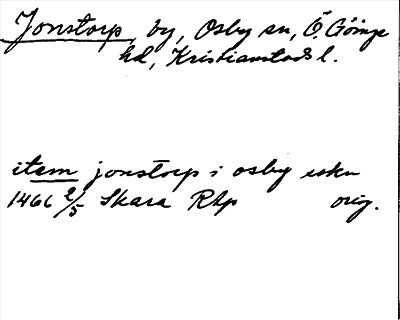 Jonstorp, by, Osby sn, Ö. Göinge
hd, Kristianstads l.
item jonstorp i osby sokn
1466 2/5 Skara Rtp orig.